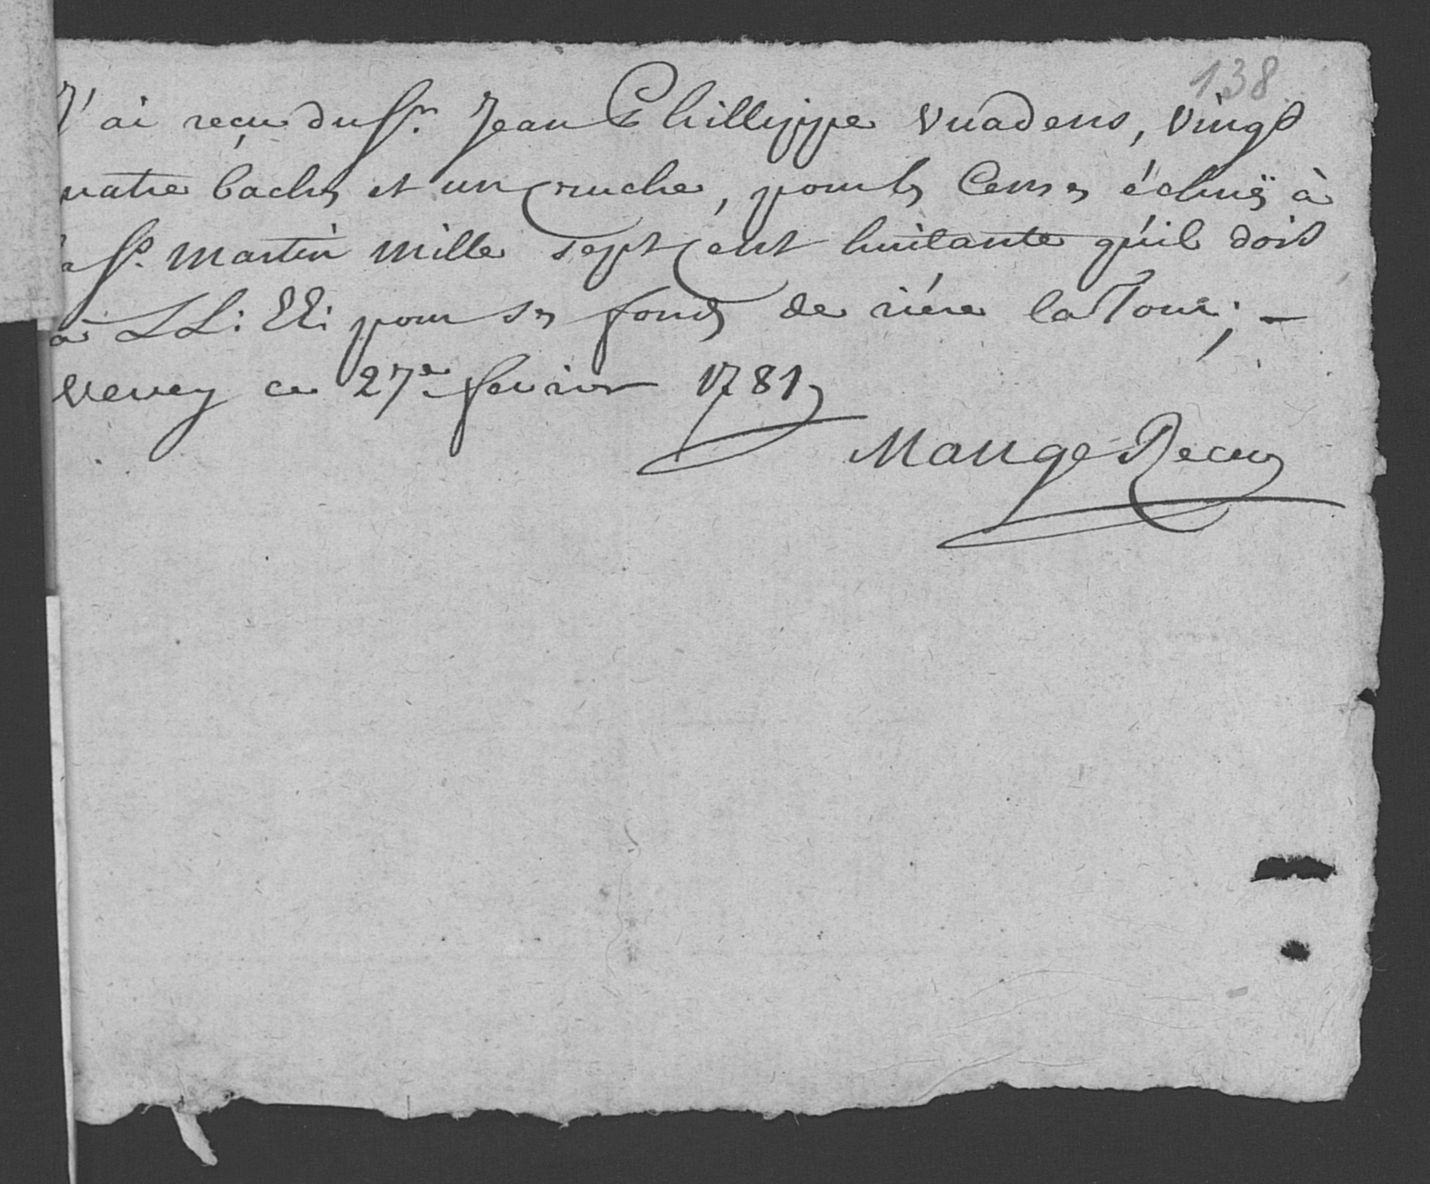 138
J'ai reçu du Sr. Jean Phillippe Vuadens, Vingt
quatre baches et un cruche, pour les Censes échuës à
la St. Martin mille sept cent huitante qu'il doit
à LL: EE: pour ses fonds de riére la Tour; -
Vevey ce 27e. fevrier 1781
Mange Receur